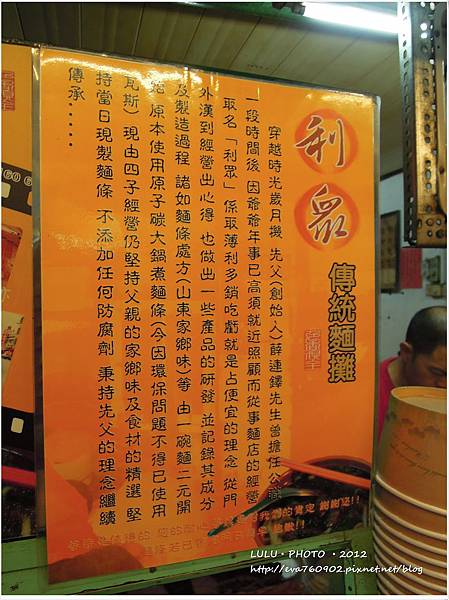 利眾
傳統麵攤
穿越時光歲月機 先父(創始人)薛連鐸先生曾擔任公職
一段時間後 因爺爺年事已高須就近照顧而從事麵店的經營
取名「利眾」係取薄利多銷吃虧就是占便宜的理念 從門
外漢到經營出心得 也做出一些產品的研發 並記錄其成分
及製造過程 諸如麵條處方(山東家鄉味)等 由一碗麵二元開
始 原本使用原子碳大鍋煮麵條(今因環保問題不得已使用
瓦斯) 現由四子經營仍堅持父親的家鄉味及食材的精選 堅
持當日現製麵條 不添加任何防腐劑 秉持先父的理念繼續
傳承.....
您的耐心
我們的肯定 謝謝您!!
LULU・PHOTO・2012
http://eva760902.pixnet.net/blog